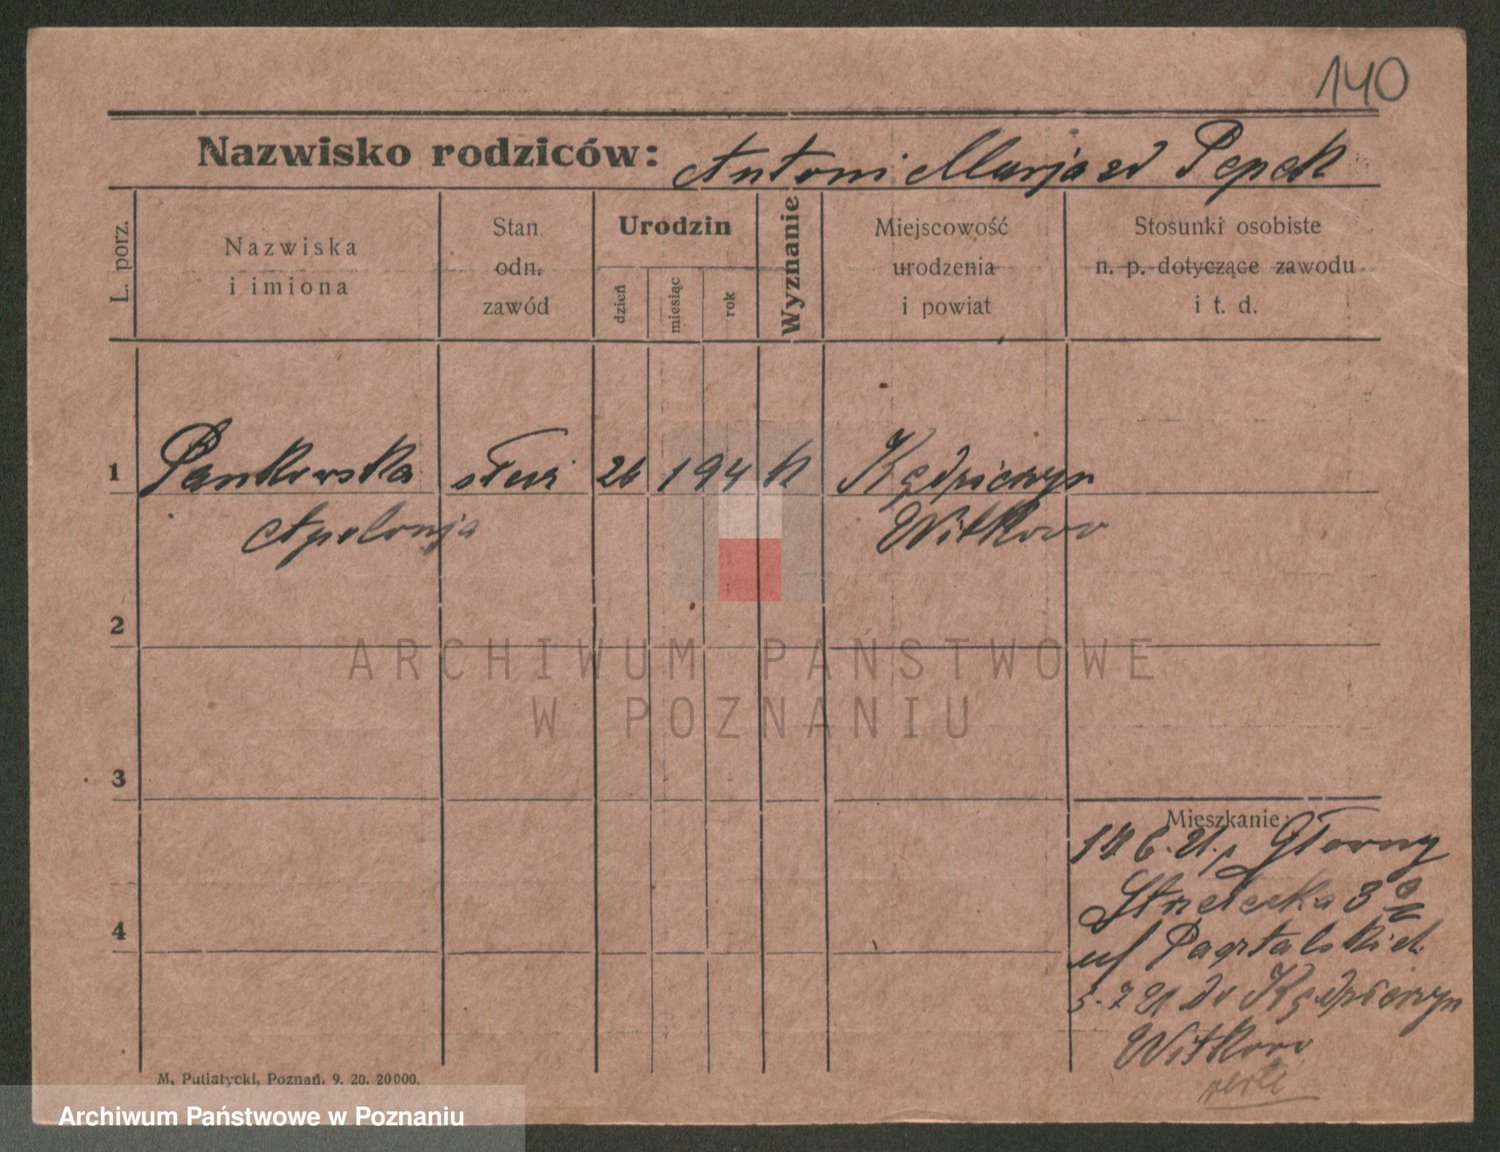 140
Nazwisko rodziców: Antoni Marja zd Pepek
L. porz.
Nazwiska
i imiona
Stan
odn.
zawód
Urodzin
dzień
miesiąc
rok
Wyznanie
Miejscowość
urodzenia
i powiat
Stosunki osobiste
n. p. dotyczące zawodu
i t. d.
1 Pankowska służ 26 1 94 k Kędzierzyn
Apolonja Witkowo
2
ARCHIWUM PAŃSTWOWE
W POZNANIU
3
Mieszkanie:
6. 21. Głowny
Strzelecka 3
4
5. 7 21 do Kędzierzyn
Witkowo
M. Putiatycki, Poznań. 9. 20. 20000.
Archiwum Państwowe w Poznaniu